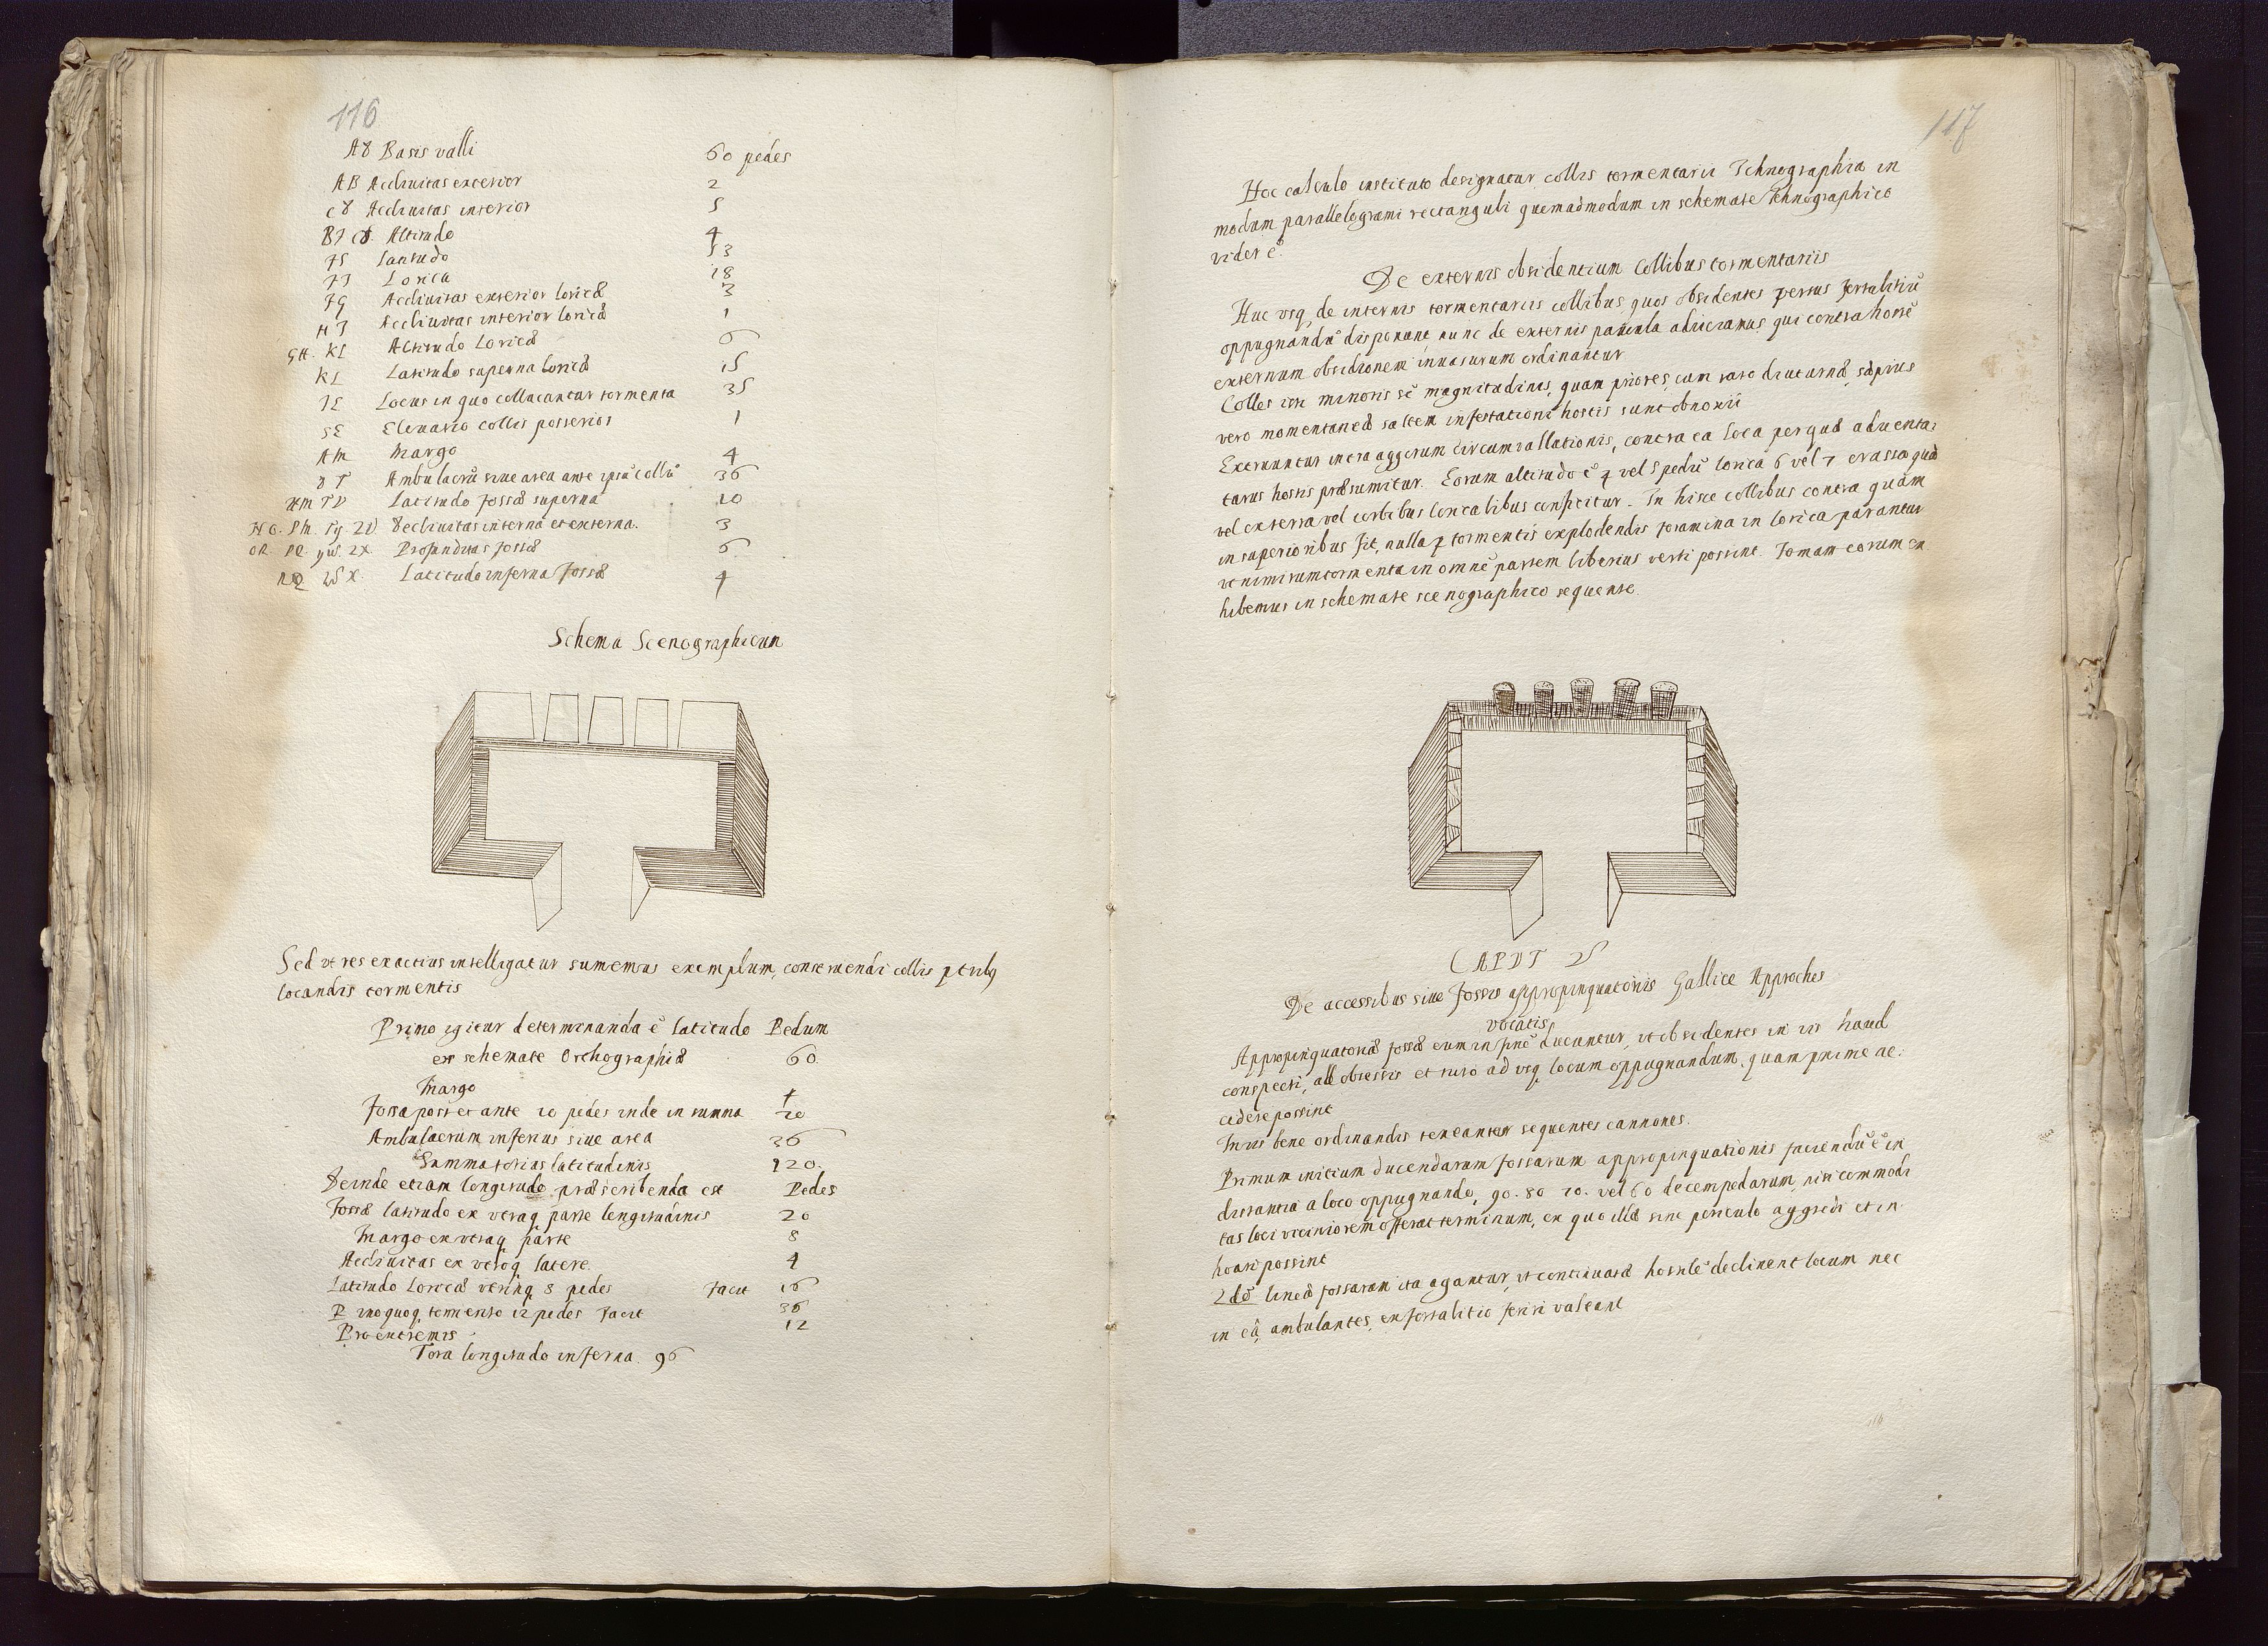 116
A8 Basis valli 60 pedes
AB Accliuitas exterior 2
c8 Accliuitas interior 5
Altitudo 4
Latitudo 53
Lorica 18
Accliuitas exterior loricæ 3
Accliuitas interior loricæ 1
GH. KL Altitudo Loricæ 6
KL Latitudo superna loricæ 15
Locus in quo collacantur tormenta 35
SE Eleuatio collis posterior 1
AM Margo 4
Ambulacrũ siue area ante ipsũ collẽ 36
Latitudo fossæ superna 10
decliuitas interna et externa. 3
Profunditas fossæ 6
Latitudo inferna fossæ 4
Schema Scenographicum
Sed vt res exactius intelligatur sumemus exemplum, construendi collis ꝑ tribꝫ
locandis tormentis
Primo igitur determinanda ẽ latitudo Pedum
ex schemate Orthographiæ 60.
Margo 4
Fossa post et ante 10 pedes inde in summa 20
Ambulacrum inferius siue area 36
Summa totius latitudinis 120.
Deinde etiam longitudo præscribenda est Pedes
Fossæ latitudo ex vtraqꝫ parte longitudinis 20
Margo ex vtraqꝫ parte 8
Accliuitas ex vtroqꝫ latere. 4
Latitudo Loricæ vtrinqꝫ 8 pedes facit 16
P vnoquoqꝫ tormento 12 pedes facit 36
Pro extremis 12
Tota longitudo inferna. 96
117
Hoc calculo instituto designatur collis tormentarii Ichnographia in
modum parallelogrami rectanguli quemadmodum in schemate Ichnographico
vider ẽ.
De externis obsidentium Collibus tormentariis
Huc vsqꝫ de internis tormentariis collibus, quos obsidentes versus fortalitiũ
oppugnandũ disponunt, nunc de externis paucula adiiciamus, qui contra hostẽ
externum obsidionem inuasurum ordinantur
Colles isti minoris st̃ magnitudinis, quam priores, cum raro diuturnæ, sæpius
vero momentaneæ saltem infestationi hostis sunt obnoxii
Extruuntur intra aggerum circumvallationis, contra ea loca per quæ aduenta⸗
turus hostis præsumitur. Eorum altitudo ẽ 4 vel 5 pedũ lorica 6 vel 7 crassa quæ
vel ex terra vel corbibus loricalibus conficitur. In hisce collibus contra quam
in superioribus fit, nulla ꝓ tormentis explodendis foramina in lorica parantur
vt nimirum tormenta in omnẽ partem liberius verti possint. Formam eorum ex
hibemus in schemate scenographico sequente.
CAPUT 5
De accessibus siue fossis appropinquatoriis Gallice Approches
vocatis
Appropinquatoriæ fossæ eum in finẽ ducantur, vt obsidentes in iis haud
conspecti, ab obsessis et tuto ad vsqꝫ locum oppugnandum, quam prime ac⸗
cedere possint
In iis bene ordinandis teneantur sequentes cannones.
Primum initium ducendarum fossarum appropinquationis faciendũ ẽ in
distantia a loco oppugnando, 90. 80 70. vel 60 decempedarum, nisi commodi
tas loci viciniorem offerat terminum, ex quo illæ sine periculo aggredi et in⸗
hoari possint
2dõ lineæ fossarum ita agantur, vt continuatæ hostilẽ declinent locum nec
in eâ ambulantes, ex fortalitio feriri valeant